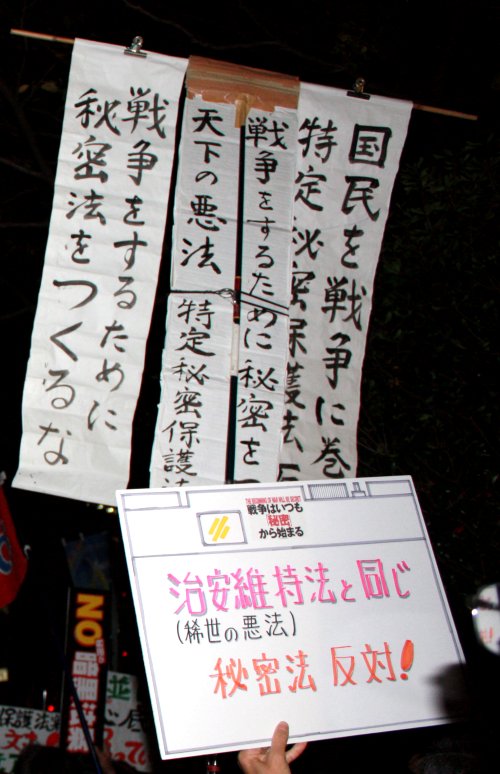 国民を戦争に巻
特定秘密保護法反
戦争をするために秘密を
天下の悪法
特定秘密保護法
戦争をするために
秘密法をつくるな
THE BEGINNING OF WAR WILL BE SECRET
戦争はいつも
秘密
から始まる
治安維持法と同じ
(稀世の悪法)
秘密法 反対!
NO
保護法